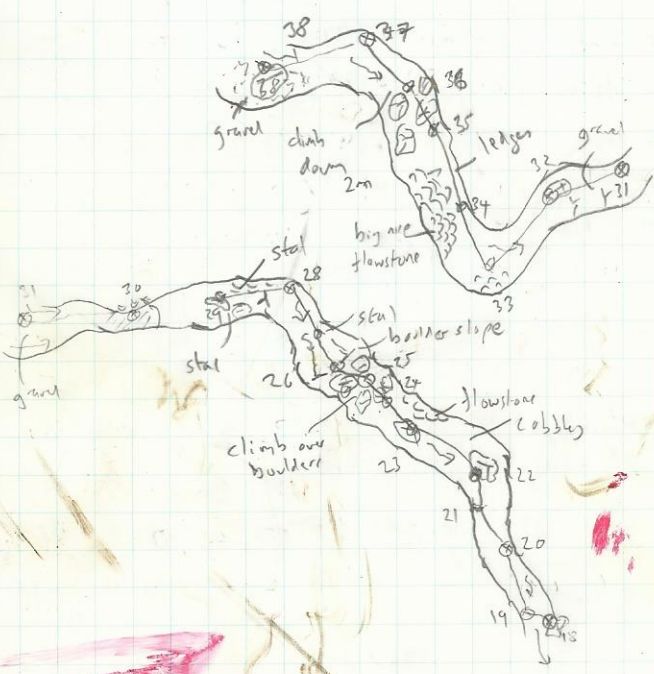 38
37
38
36
gravel
climb
down
2m
35
ledges
gravel
32
31
34
big nice
flowstone
33
stal
28
31
30
29
stal
stal
boulder slope
gravel
26
25
24
flowstone
cobbles
climb over
boulders
23
22
21
20
19
18